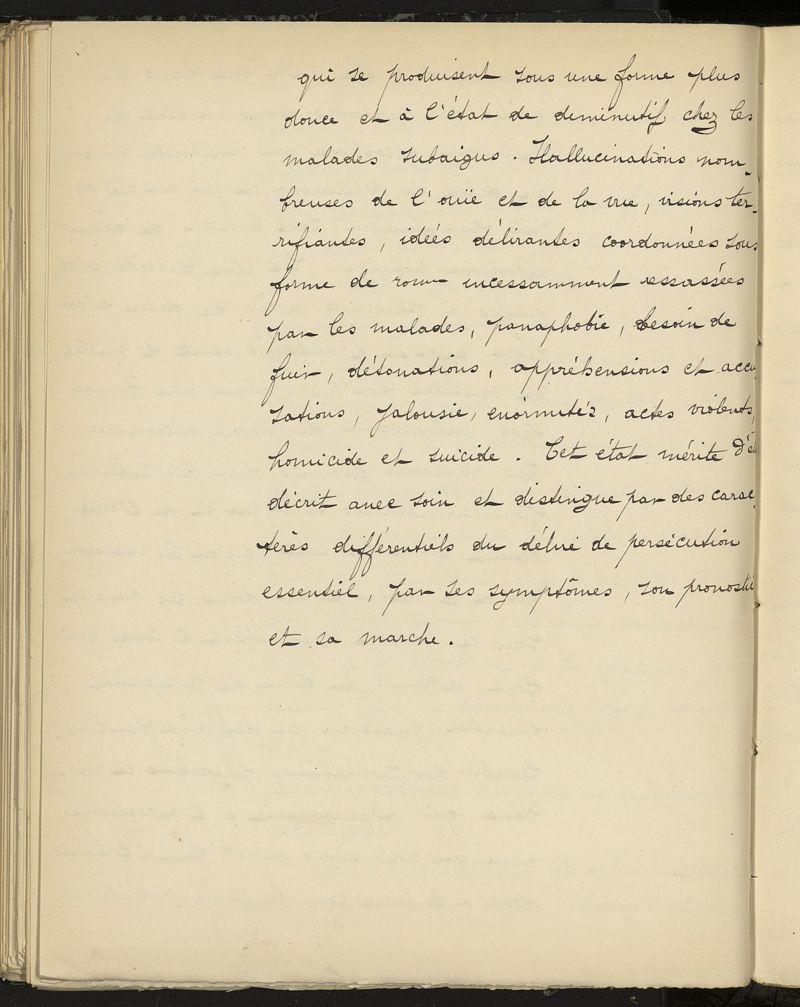 qui se produisent sous une forme plus
douce et à l'état de diminutif chez les
malades subaigus. Hallucinations nom-
breuses de l'ouïe et de la vue, visions ter-
rifiantes, idées délirantes coordonnées sous
forme de roman incessamment ressassées
par les malades, panaphobie, besoin de
fuir, détonations, appréhensions et accu
sations, jalousie, énormités, actes violents,
homicide et suicide. Cet état mérite d'ê
décrit avec soin et distingue par des carac
tères différentiels du délire de persécution
essentiel, par ses symptômes, son pronostic
et sa marche.